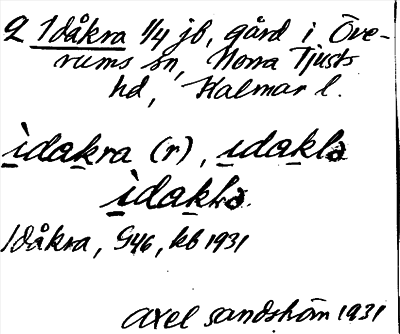 2 Idåkra 1/4 jb, gård i Öve-
rums sn, Norra Tjusts
hd, Kalmar l.
ìdakra (r), ıdaklə
ìdakla.
Idåkra, G46, kb 1931
Axel Sandström 1931